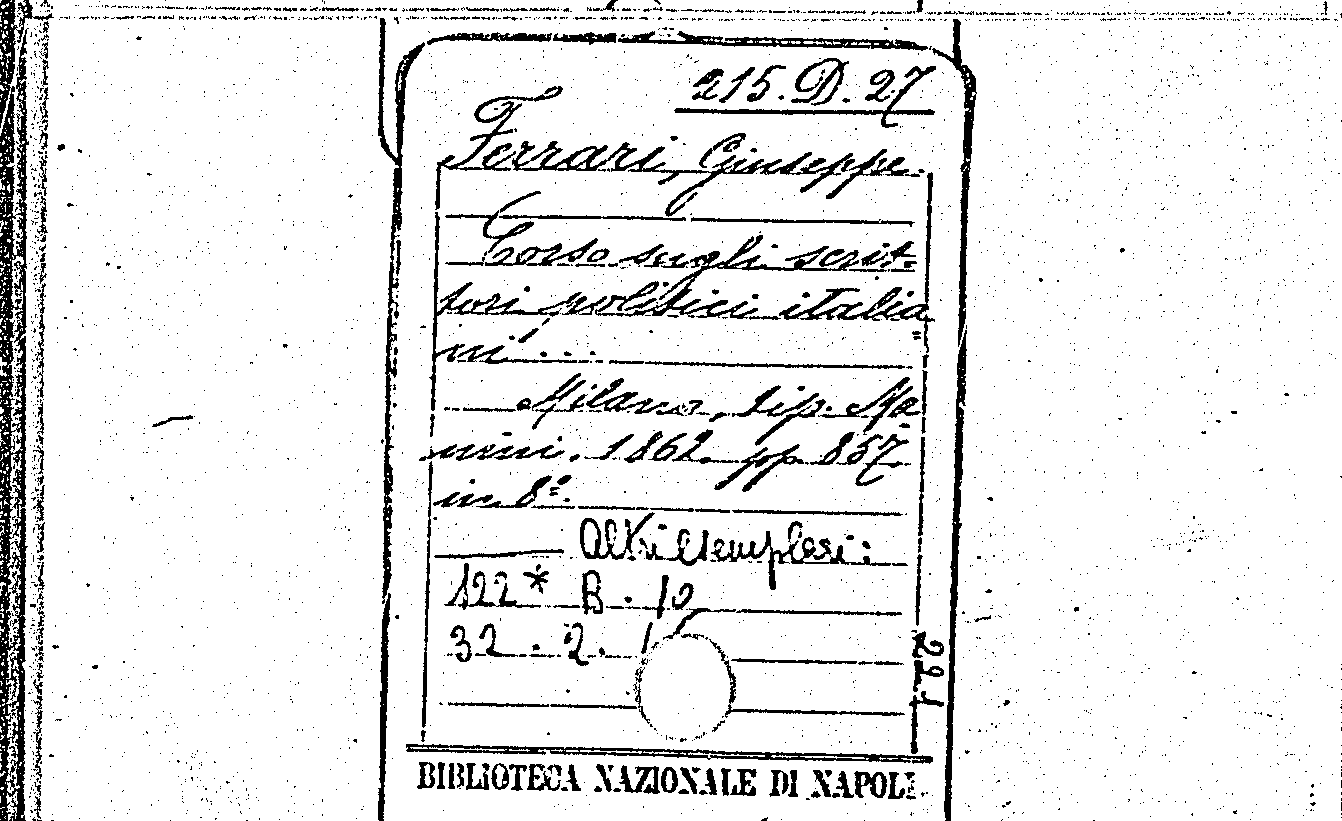 215. D. 27
Ferrari, Giuseppe.
Corso sugli scrit=
tori politici italia
ni ...
Milano, tip. Ma
nini. 1862. pp. 857.
in 8º.
Altri esemplari:
122* B. 10
32. 2.
BIBLIOTECA NAZIONALE DI NAPOLI